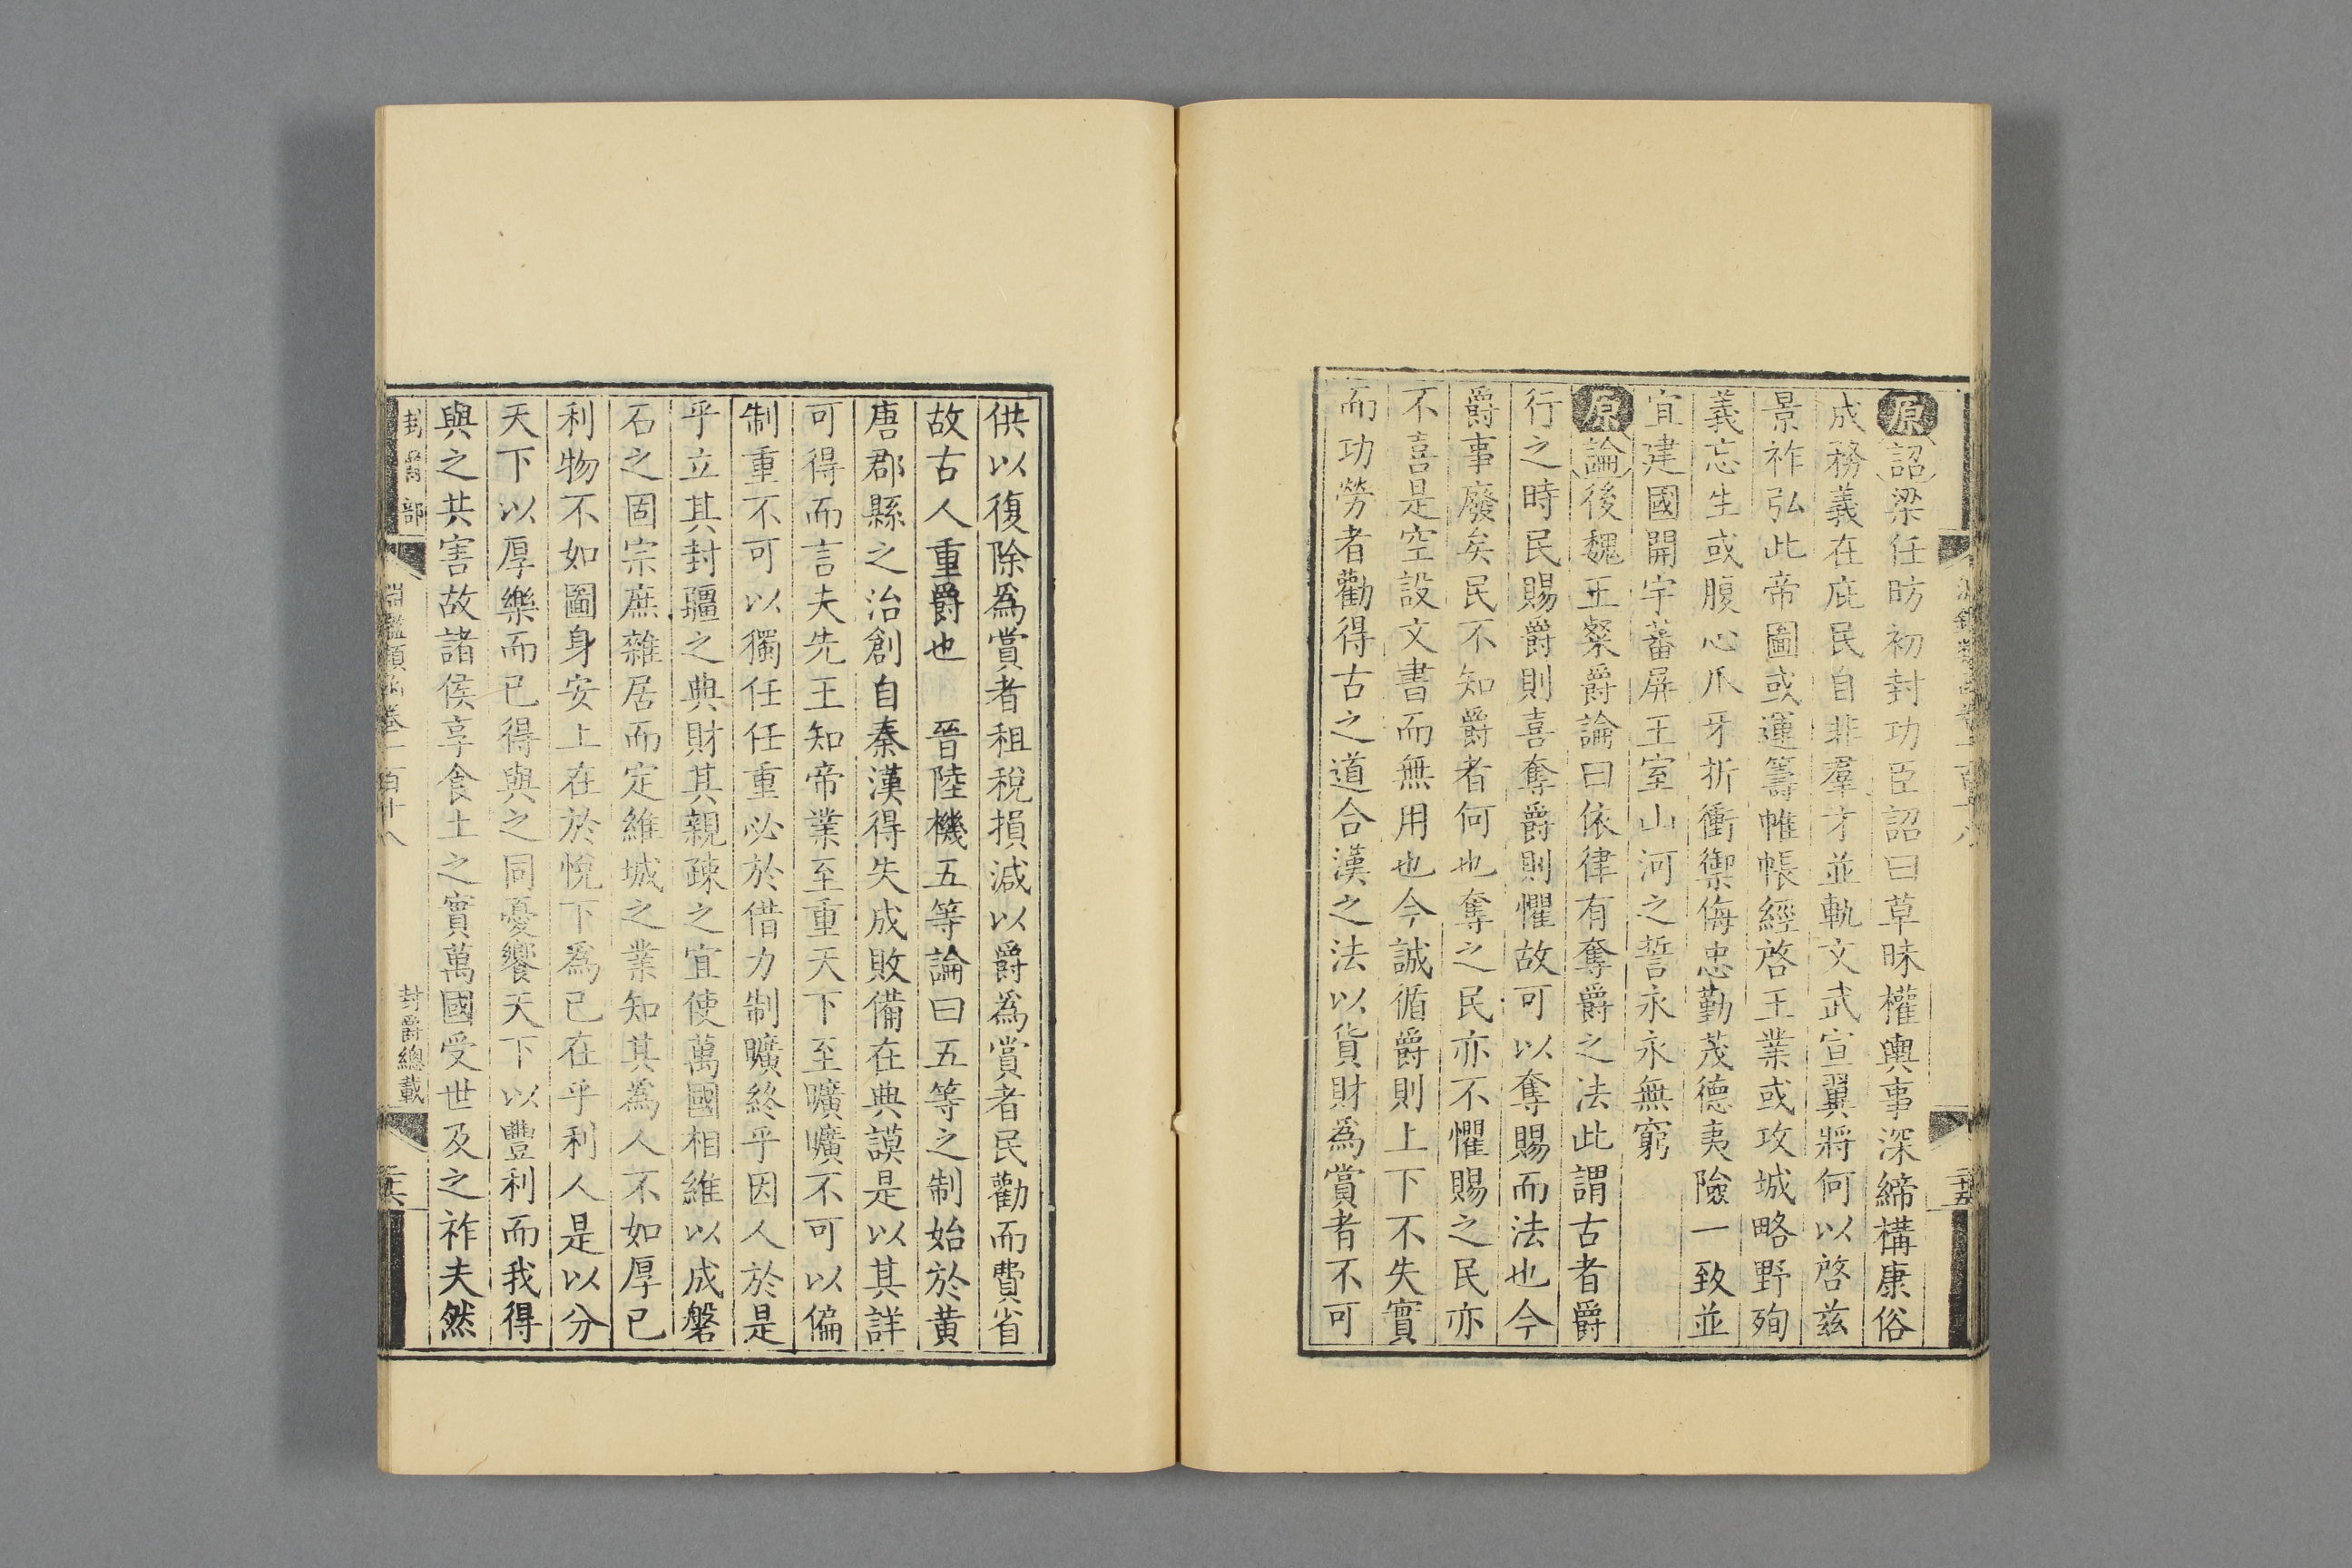 原詔梁任昉初封功臣詔曰草昧權輿事深締構康俗
成務義在庇民自非羣才並軌文武宣翼將何以啓茲
景祚弘此帝圖或運籌帷帳經啓王業或攻城略野殉
義忘生或腹心爪牙折衝禦侮忠勤茂德夷險一致並
宜建國開宇蕃屏王室山河之誓永永無窮
原論後魏王粲爵論曰依律有奪爵之法此謂古者爵
行之時民賜爵則喜奪爵則懼故可以奪賜而法也今
爵事廢矣民不知爵者何也奪之民亦不懼賜之民亦
不喜是空設文書而無用也今誠循爵則上下不失實
而功勞者勸得古之道合漢之法以貨財為賞者不可
供以復除為賞者租稅損減以爵為賞者民勸而費省
故古人重爵也　晉陸機五等論曰五等之制始於黃
唐郡縣之治創自秦漢得失成敗備在典謨是以其詳
可得而言夫先王知帝業至重天下至曠曠不可以偏
制重不可以獨任任重必於借力制曠終乎因人於是
乎立其封疆之典財其親疎之宜使萬國相維以成磐
石之固宗庶雜居而定維城之業知其為人不如厚己
利物不如圖身安上在於悅下為己在乎利人是以分
天下以厚樂而己得與之同憂饗天下以豐利而我得
與之共害故諸侯享食土之實萬國受世及之祚夫然
封爵部
淵鑑類函卷一百十八
封爵總載
二十六